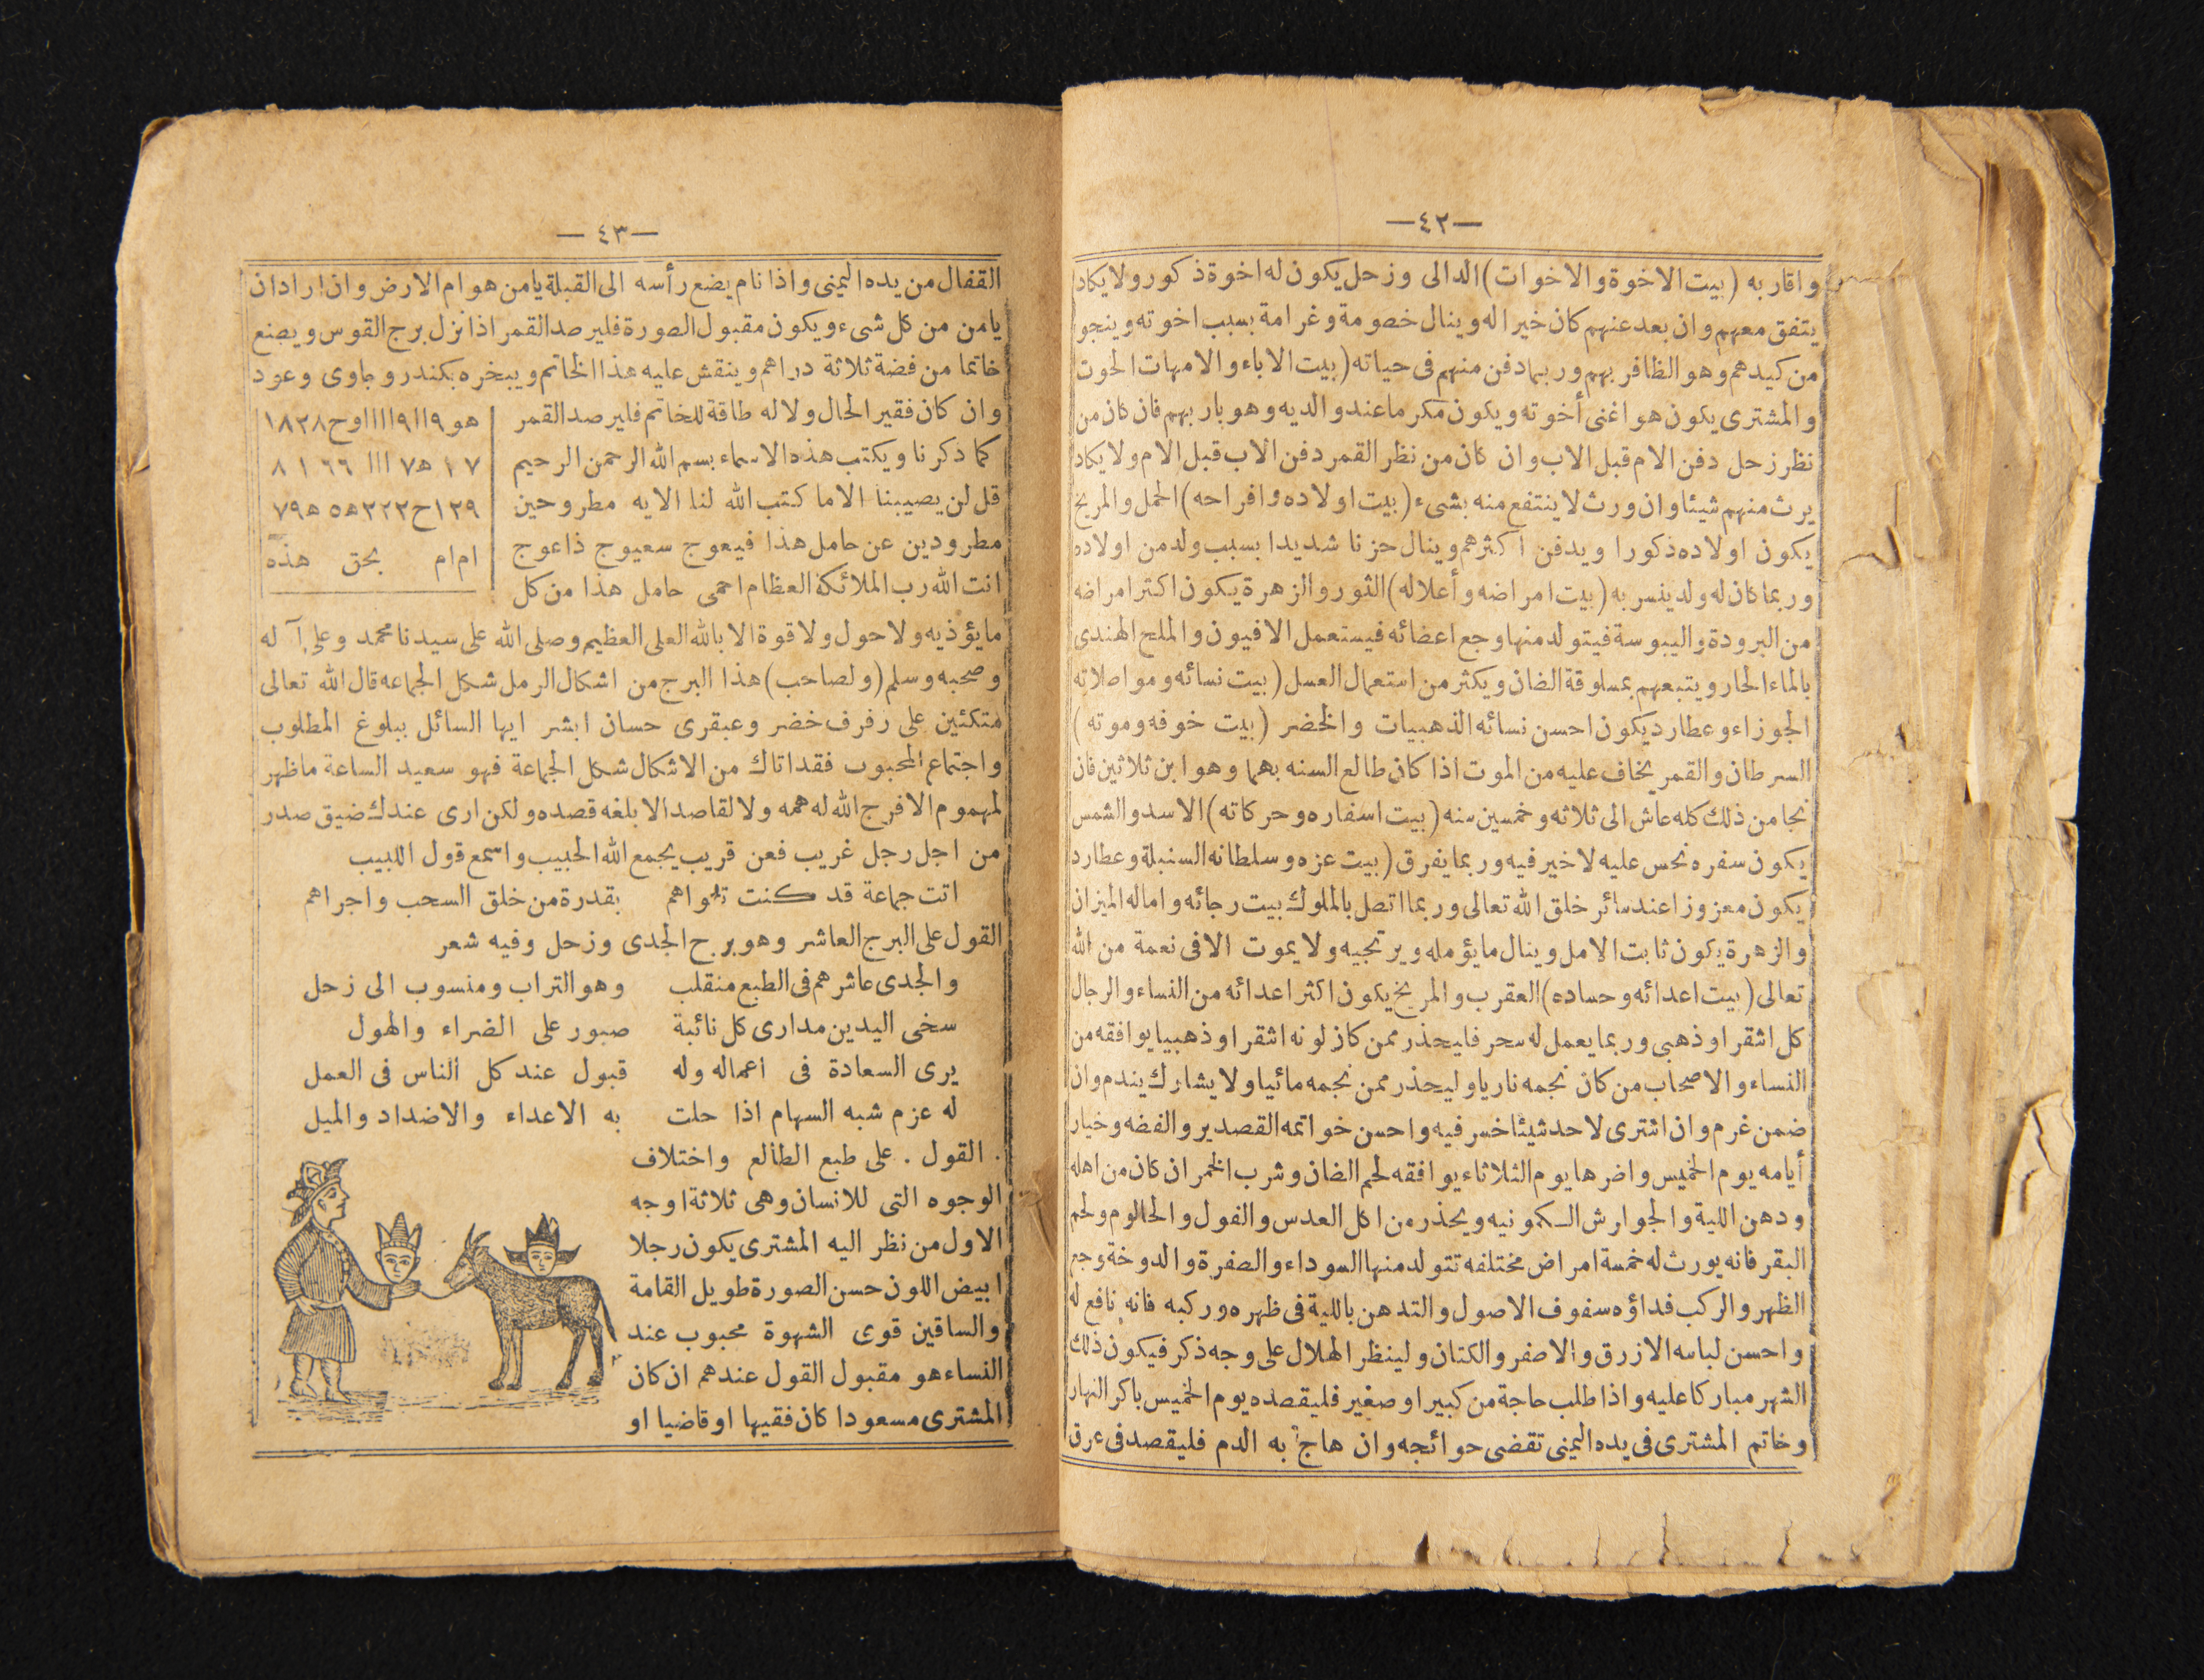 —٤٢—
واقاربه (بيت الاخوة والاخوات) الدالى وزحل يكون له اخوة ذكور ولا يكاد
يتفق معهم وان بعد عنهم كان خيرا له وينال خصومة وغرامة بسبب اخوته وينجو
من كيدهم وهو الظافر بهم وربما دفن منهم فى حياته (بيت الاباء والامهات الحوت
والمشترى يكون هو اغنى أخوته ويكون مكرما عند والديه وهو بار بهم فان كان من
نظر زحل دفن الام قبل الاب وان كان من نظر القمر دفن الاب قبل الام ولا يكاد
يرث منهم شيئا وان ورث لا ينتفع منه بشىء (بيت اولاده وافراحه) الحمل والمريخ
يكون اولاده ذكورا ويدفن اكثرهم وينال حزنا شديدا بسبب ولد من اولاده
وربما كان له ولد ينسر به (بيت امراضه وأعلاله) الثور والزهرة يكون اكثر امراضه
من البرودة واليبوسة فيتولد منها وجع اعضائه فيستعمل الافيون والملح الهندى
بالماء الحار ويتبعهم بمسلوقة الضان ويكثر من استعمال العسل (بيت نسائه ومواصلاته
الجوزاء وعطارد يكون احسن نسائه الذهبيات والخضر (بيت خوفه وموته)
السرطان والقمر يخاف عليه من الموت اذا كان طالع السنه بهما وهو ابن ثلاثين فان
نجا من ذلك كله عاش الى ثلاثه وخمسين سنه (بيت اسفاره وحركاته) الاسد والشمس
يكون سفره نحس عليه لا خير فيه وربما يفرق (بيت عزه وسلطانه السنبلة وعطارد
يكون معزوزا عند سائر خلق الله تعالى وربما اتصل بالملوك بيت رجائه واماله الميزان
والزهرة يكون ثابت الامل وينال ما يؤمله ويرتجيه ولا يموت الا فى نعمة من الله
تعالى (بيت اعدائه وحساده) العقرب والمريخ يكون اكثر اعدائه من النساء والرجال
كل اشقر او ذهبى وربما يعمل له سحر فليحذر ممن كان لونه اشقر او ذهبيا يوافقه من
النساء والاصحاب من كان نجمه ناريا وليحذر ممن نجمه مائيا ولا يشارك يندم وان
ضمن غرم وان اشترى لاحد شيئا خسر فيه واحسن خواتمه القصدير والفضه وخيار
أيامه يوم الخميس واضرها يوم الثلاثاء يوافقه لحم الضان وشرب الخمر ان كان من اهله
ودهن اللية والجوارش الكمونيه ويحذر من اكل العدس والفول والحالوم ولحم
البقر فانه يورث له خمسة امراض مختلفه تتولد منها السوداء والصفرة والدوخة وجع
الظهر والركب فداؤه سفوف الاصول والتدهن بالليه فى ظهره وركبه فانه نافع له
واحسن لباسه الازرق والاصفر والكتان ولينظر الهلال على وجه ذكر فيكون ذلك
الشهر مباركا عليه واذا طلب حاجة من كبير او صغير فليقصده يوم الخميس باكر النهار
وخاتم المشترى فى يده اليمنى تقضى حوائجه وان هاج به الدم فليقصد فى عرق
— ٤٣—
القفال من يده اليمنى واذا نام يضع رأسه الى القبلة يامن هوام الارض وان اراد ان
يامن من كل شىء ويكون مقبول الصورة فليرصد القمر اذا نزل برج القوس ويصنع
خاتما من فضة ثلاثة دراهم وينقش عليه هذا الخاتم ويبخره بكندر وجاوى وعود
وان كان فقير الحال ولا له طاقة للخاتم فليرصد القمر
كما ذكرنا ويكتب هذه الاسماء بسم الله الرحمن الرحيم
قل لن يصيبنا الا ما كتب الله لنا الايه مطروحين
مطرودين عن حامل هذا فيعوج سعيوج ذاعوج
انت الله رب الملائكة العظام احمى حامل هذا من كل
هو٩اا٩اااااوح١٨٢٨
٧ ١ ه٧ ااا ٦٦ ١ ٨
١٢٩ح٣٢٢ه٥ ه٧٩
ام ام بحق هذه
ما يؤذيه ولا حول ولا قوة الا بالله العلى العظيم وصلى الله على سيدنا محمد وعلى آله
وصحبه وسلم (ولصاحب) هذا البرج من اشكال الرمل شكل الجماعه قال الله تعالى
متكئين على رفرف خضر وعبقرى حسان ابشر ايها السائل ببلوغ المطلوب
واجتماع المحبوب فقد اتاك من الاشكال شكل الجماعة فهو سعيد الساعة ما ظهر
لمهموم الا فرج الله له همه ولا لقاصد الا بلغه قصده ولكن ارى عندك ضيق صدر
من اجل رجل غريب فعن قريب يجمع الله الحبيب واسمع قول اللبيب
اتت جماعة قد كنت تهواهم بقدرة من خلق السحب واجراهم
القول على البرج العاشر وهو برج الجدى وزحل وفيه شعر
والجدى عاشرهم فى الطبع منقلب وهو التراب ومنسوب الى زحل
سخى اليدين مدارى كل نائبة صبور على الضراء والهول
يرى السعادة فى اعماله وله قبول عند كل الناس فى العمل
له عزم شبه السهام اذا حلت به الاعداء والاضداد والميل
. القول . على طبع الطالع واختلاف
الوجوه التى للانسان وهى ثلاثة اوجه
الاول من نظر اليه المشترى يكون رجلا
ابيض اللون حسن الصورة طويل القامة
والساقين قوى الشهوة محبوب عند
النساء هو مقبول القول عندهم ان كان
المشترى مسعودا كان فقيها او قاضيا او